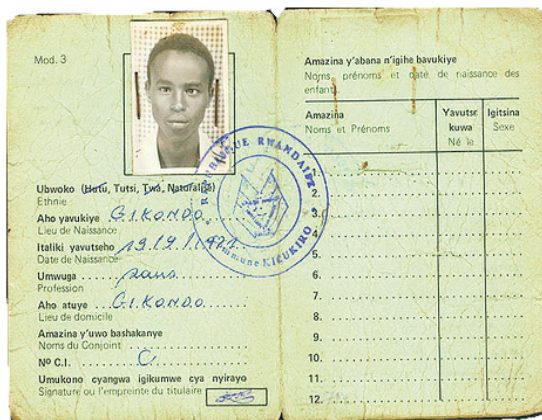 Mod. 3
Ubwoko (Hutu, Tutsi, Twa, Naturalisé)
Ethnie
Aho yavukiye GIKONDO
Lieu de Naissance
Italiki yavutseho
Date de Naissance
Umwuga sans
Profession
Aho atuye GIKONDO
Lieu de domicile
Amazina y'uwo bashakanye
Noms du Conjoint
No C.I.
Umukono cyangwa igikumwe cya nyirayo
Signature ou l'empreinte du titulaire
REPUBLIQUE RWANDAISE
Commune KICUKIRO
Amazina y'abana n'igihe bavukiye
Noms, prénoms et date de naissance des
enfants
Amazina
Noms et Prénoms
Yavutse
kuwa
Né le
Igitsina
Sexe
1.
2.
3.
4.
5.
6.
7.
8.
9.
10.
11.
12.